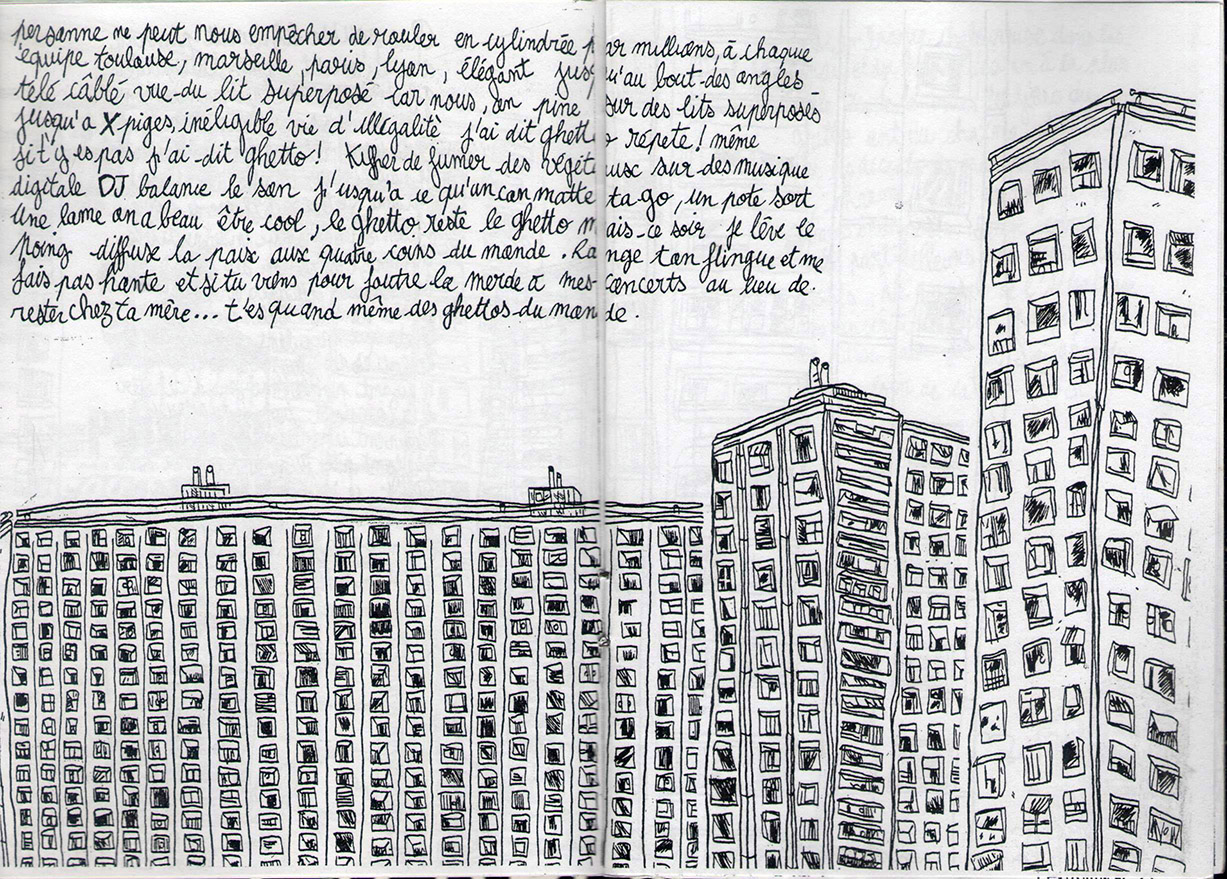 personne ne peut nous empêcher de rouler en cylindrée par millions, à chaque
équipe toulouse, marseille, paris, lyon, élégant jusqu'au bout des angles
télé câblé vue du lit superposé car nous, on pine sur des lits superposés
jusqu'a X piges, inéligible vie d'illégalité j'ai dit ghetto répete! même
si t'y es pas j'ai dit ghetto! Kiffer de fumer des végétaux sur des musique
digitale DJ balance le son j'usqu'a ce qu'on can matte ta go, un pote sort
Une lame on a beau être cool, le ghetto reste le ghetto mais ce soir je lêve le
Poing diffuse la paix aux quatre coins du monde. Range ton flingue et me
fais pas hante et si tu viens pour foutre la merde a mes concerts au lieu de
rester chez ta mère... t'es quand même des ghettos du monde.